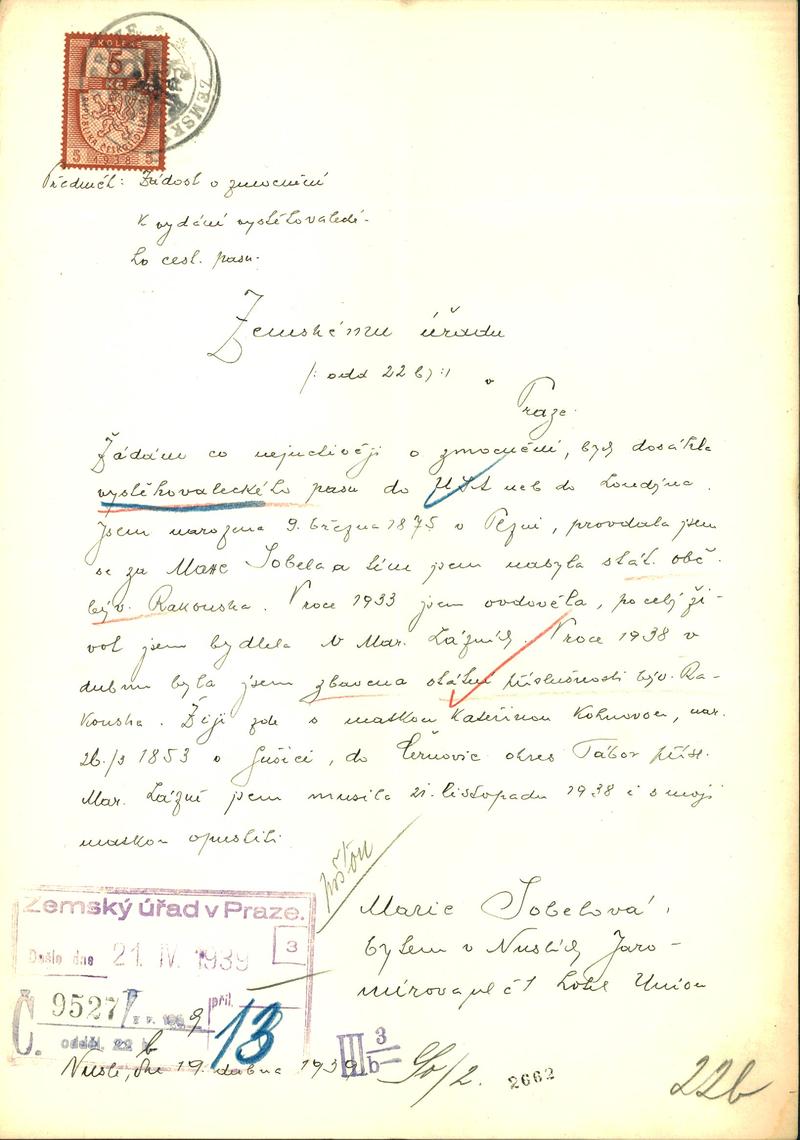 KOLEK
5
Kč
REPUBLIKA ČESKOSLOVENSKÁ
5 1938 5
ZEMSK
Předmět: Žádost o zmocnění
k vydání vystěhovalecké-
ho cest. pasu.
Zemskému úřadu
/: odd 22 b) :/ v
Praze.
Žádám co nejuctivěji o zmocnění, bych dosáhla
vystěhovaleckého pasu do USA neb do Londýna.
Jsem narozena 9. března 1875 v Plzni, provdala jsem
se za Maxe Sobela a tím jsem nabyla stát. obč.
býv. Rakouska. V roce 1933 jsem ovdověla, po celý ži-
vot jsem bydlela v Mar. Lázních. V roce 1938 v
dubnu byla jsem zbavena státní příslušnosti býv. Ra-
kouska. Žiji zde s matkou Kateřinou Kohnovou, nar.
26./3 1853 v Sušici, do Černovic okres Tábor přísl.
Mar. Lázně jsem musila 21. listopadu 1938 i s mojí
matkou opustiti.
poštou
Marie Sobelová,
bytem v Nuslích Jaro-
mírova ul č 1 hotel Union
Zemský úřad v Praze.
Došlo dne 21 IV. 1939
3
Č. 9527 9 příl.
odděl. 22 b
13
Nusle, dne 19. dubna 1939
III 3
b
2662
22b